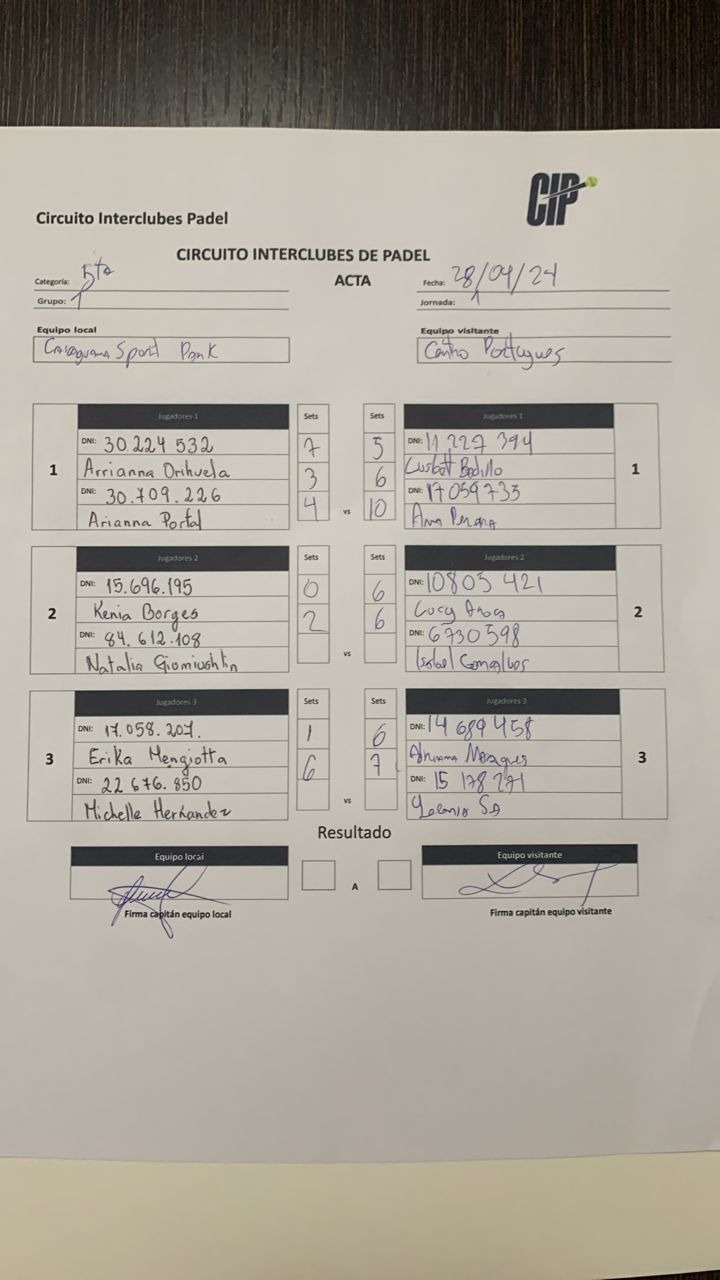 CIP
Circuito Interclubes Padel
CIRCUITO INTERCLUBES DE PADEL
Categoría: 5ta
ACTA
Fecha: 28/04/24
Grupo: 1
Jornada: 1
Equipo local
Equipo visitante
Sport Park
Centro Portugues
Jugadores 1 Sets Sets Jugadores 1
DNI: 30.224 532 7 5 DNI: 11 227 394
1 Arrianna Orihuela 3 6 1
DNI: 30.709.226 4 vs 10 DNI: 17059733
Arianna Portal Ana
Jugadores 2 Sets Sets Jugadores 2
DNI: 15.696.195 0 6 DNI: 10803 421
2 Kenia Borges 2 6 Lucy 2
DNI: 84.612.108 DNI: 6730598
Natalia vs Isabel
Jugadores 3 Sets Sets Jugadores 3
DNI: 17.058.207. 1 6 DNI: 14 689 458
3 Erika Mengiotta 6 7 3
DNI: 22 676.850 DNI: 15 178 271
Michelle Hernandez vs
Resultado
Equipo local Equipo visitante
A
Firma capitán equipo local
Firma capitán equipo visitante